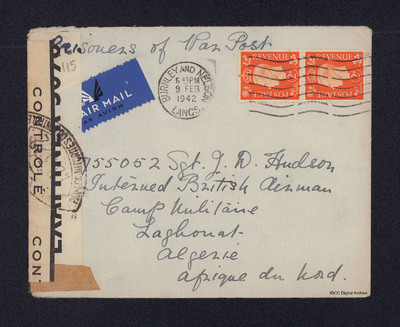 Prisoners of War Post
115
AIR MAIL
PAR AVION
BURNLEY AND NELSON
6 45 PM
9 FEB
1942
LANCS
REVENUE
REVENUE
POSTAGE
POSTAGE
755052 Sgt. J. D. Hudson
Interned British Airman
Camp Militaire
Laghouat
Algerie
Afrique du Nord.
CONTROLE
CON
IBCC Digital Archive